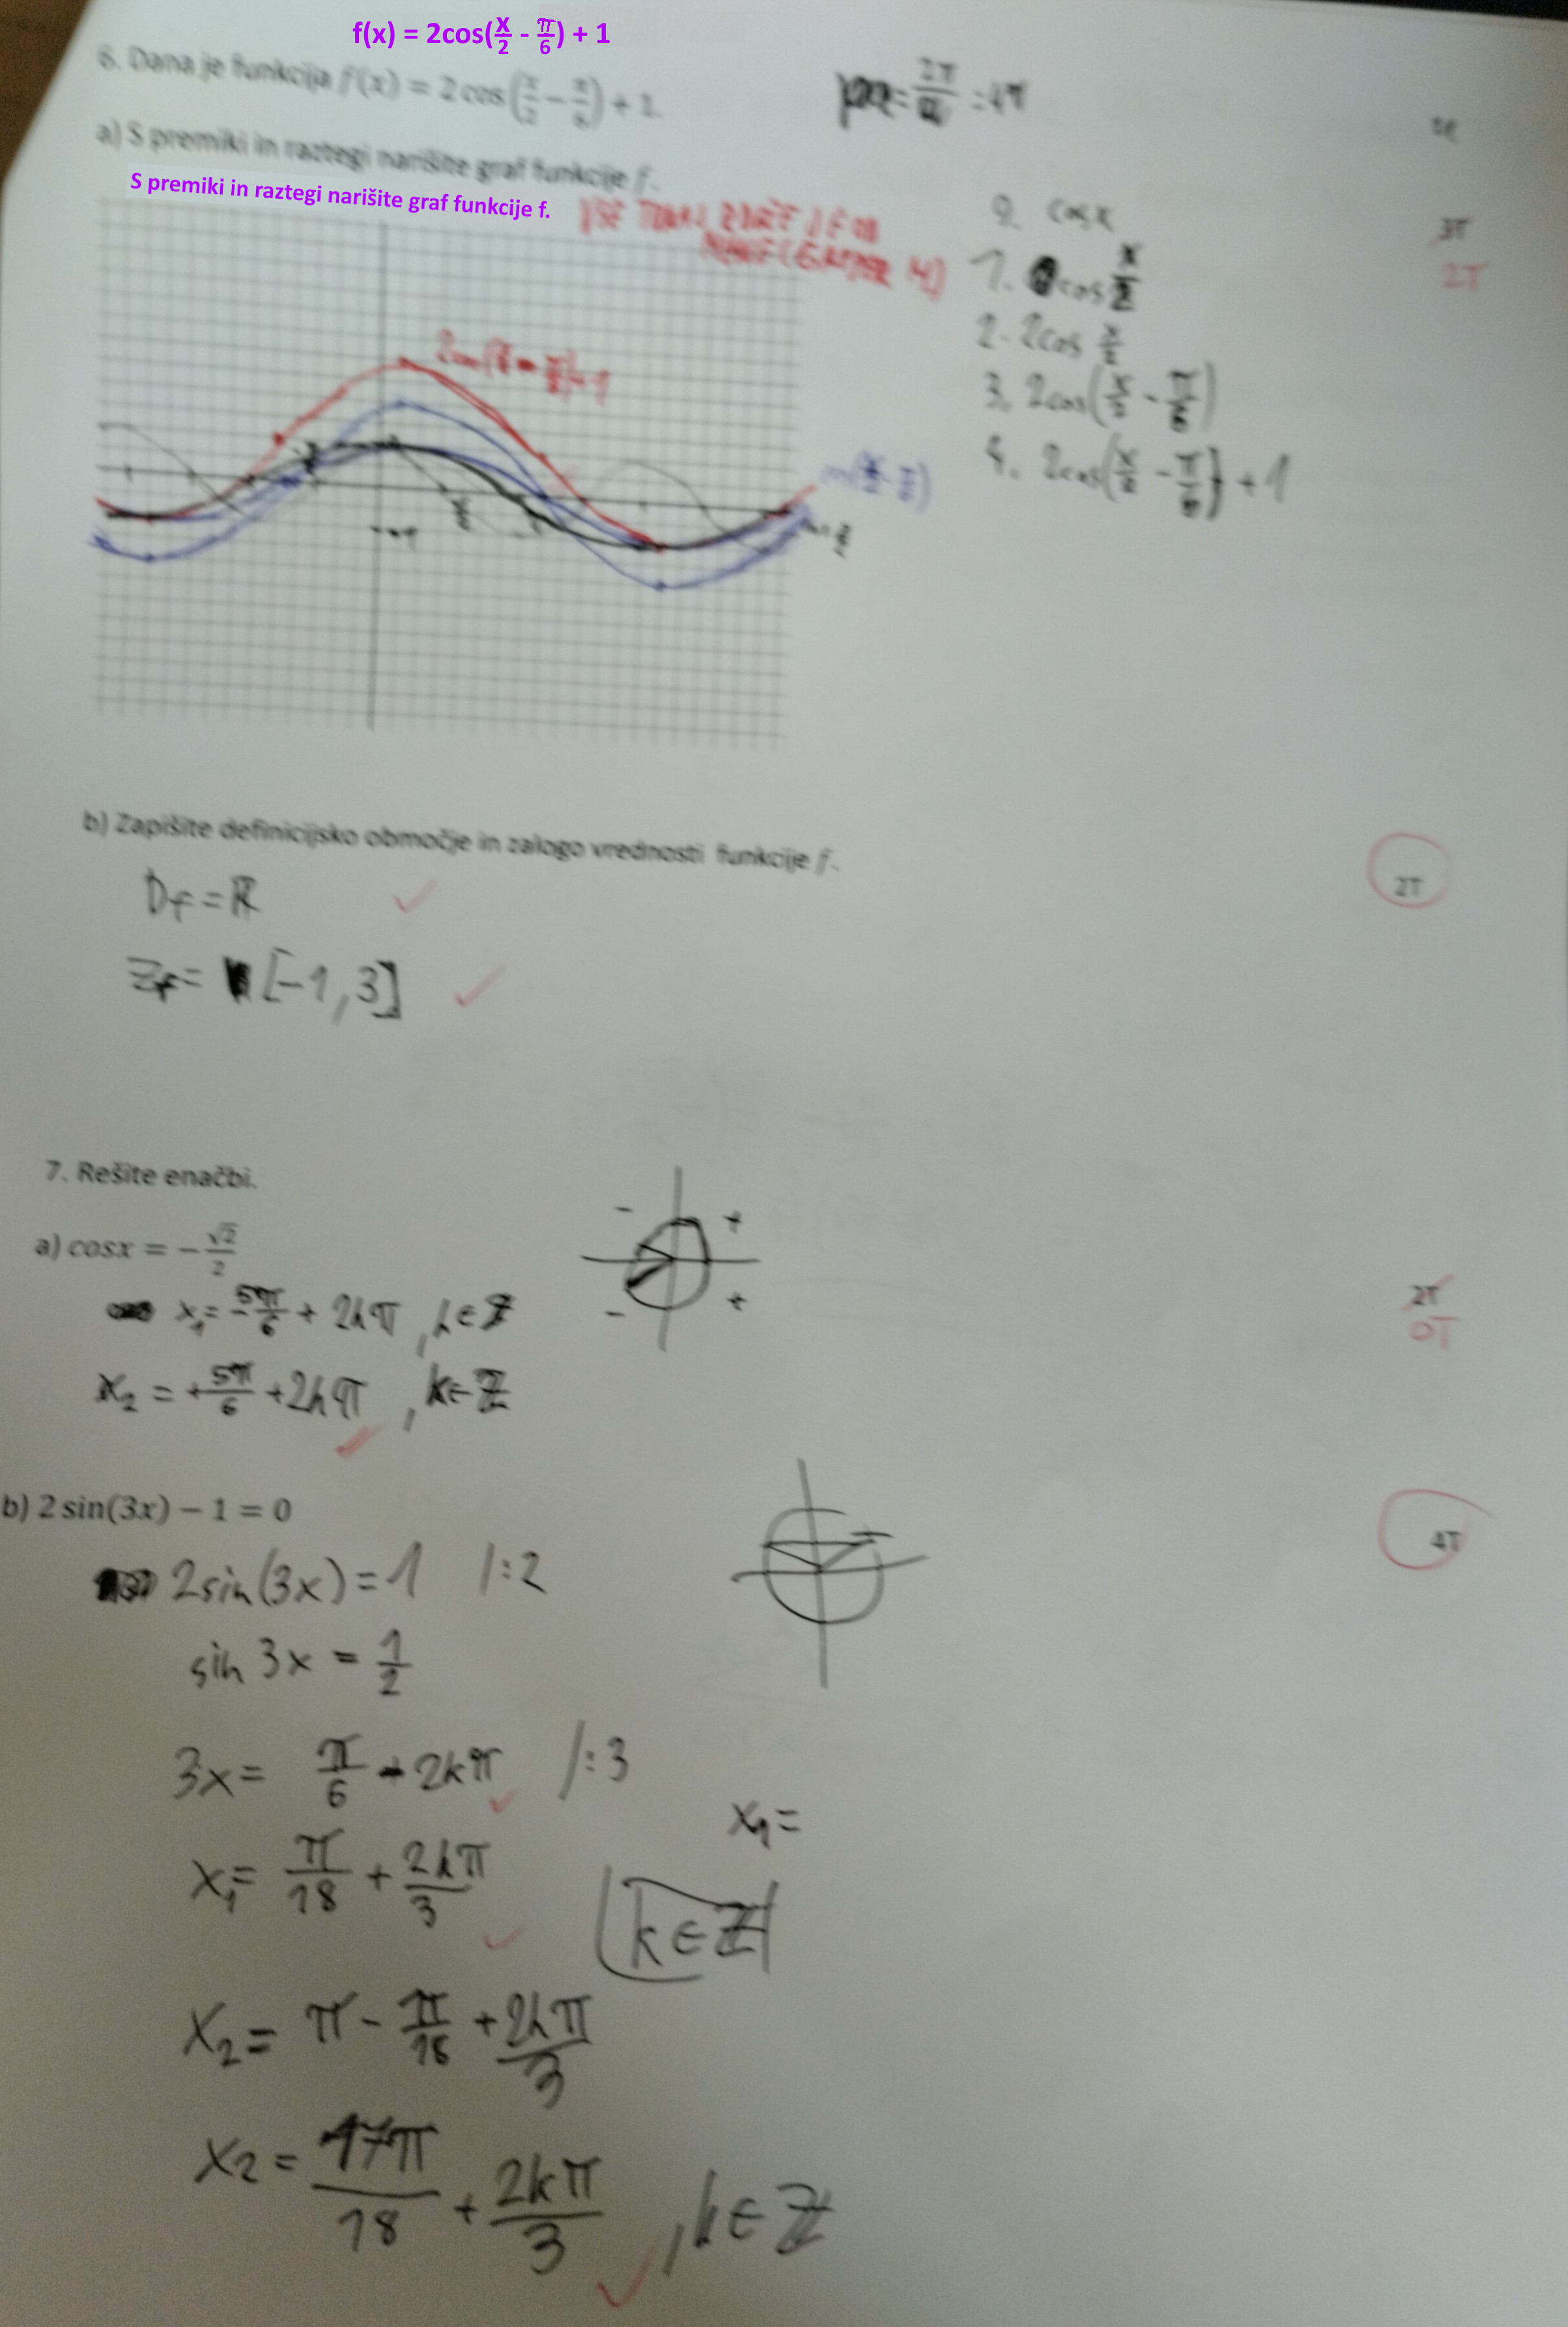 f(x) = 2cos(x/2 - π/6) + 1
6. Dana je funkcija f(x) = 2 cos(x/2 − π/6) + 1.
= 2π/ = 4π
a) S premiki in raztegi narišite graf funkcije f.
S premiki in raztegi narišite graf funkcije f.
3T
2T
0. cos x
1. cos x/2
2. 2cos x/2
3. 2cos(x/2 - π/6)
4. 2cos(x/2 - π/6) + 1
b) Zapišite definicijsko območje in zalogo vrednosti funkcije f.
2T
Df = ℝ
Zf = [-1, 3]
7. Rešite enačbi.
- +
- +
a) cosx = −√2/2
2T
0T
x₁ = -5π/6 + 2kπ, k ∈ ℤ
x₂ = +5π/6 + 2kπ, k ∈ ℤ
b) 2 sin(3x) − 1 = 0
4T
2sin(3x) = 1 /:2
sin 3x = 1/2
3x = π/6 + 2kπ /:3
x₁ =
x₁ = π/18 + 2kπ/3
k ∈ ℤ
x₂ = π - π/18 + 2kπ/3
x₂ = 17π/18 + 2kπ/3, k ∈ ℤ